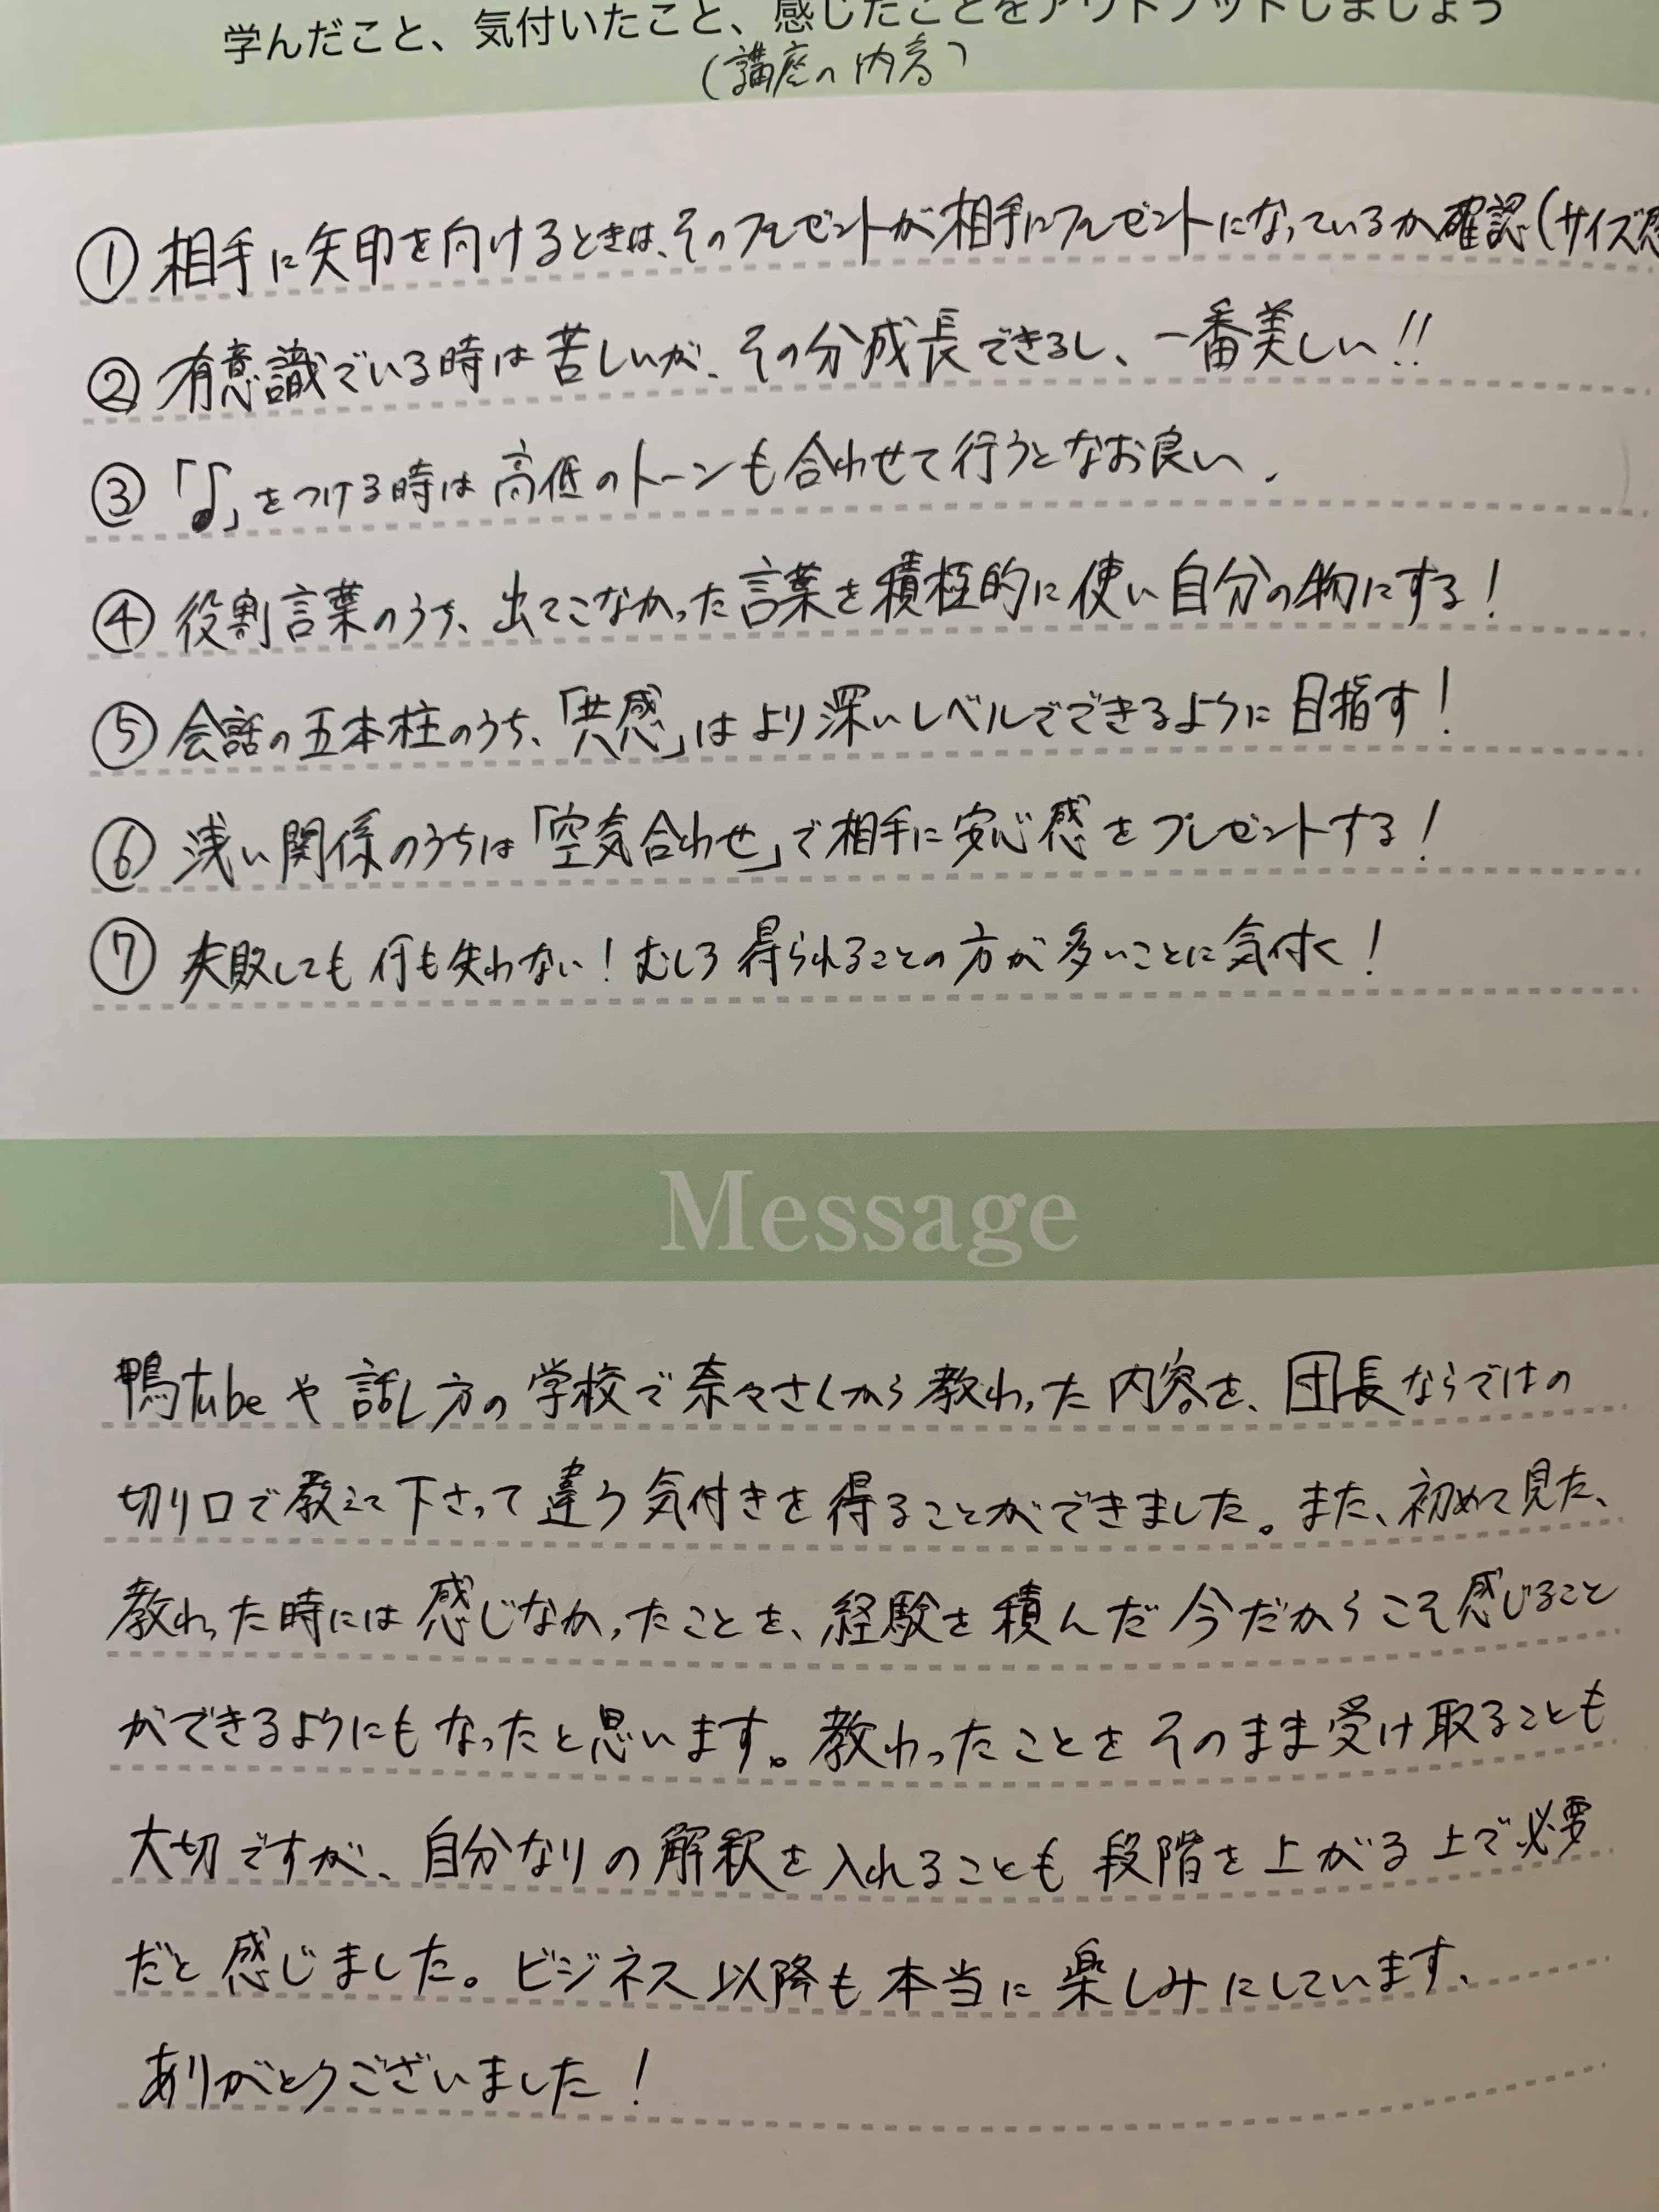 学んだこと、気付いたこと、感じたことをアウトプットしましょう
(講座の内容)
① 相手に矢印を向けるときは、そのプレゼントが相手にプレゼントになっているか確認(サイズ感
② 有意識でいる時は苦しいが、その分成長できるし、一番美しい!!
③ 「♪」をつける時は高低のトーンも合わせて行うとなお良い。
④ 役割言葉のうち、出てこなかった言葉を積極的に使い自分の物にする!
⑤ 会話の五本柱のうち、「共感」はより深いレベルでできるように目指す!
⑥ 浅い関係のうちは「空気合わせ」で相手に安心感をプレゼントする!
⑦ 失敗しても何も失わない!むしろ得られることの方が多いことに気付く!
Message
鴨tubeや話し方の学校で奈々さんから教わった内容を、団長ならではの
切り口で教えて下さって違う気付きを得ることができました。また、初めて見た、
教わった時には感じなかったことを、経験を積んだ今だからこそ感じること
ができるようにもなったと思います。教わったことをそのまま受け取ることも
大切ですが、自分なりの解釈を入れることも段階を上がる上で必要
だと感じました。ビジネス以降も本当に楽しみにしています。
ありがとうございました!